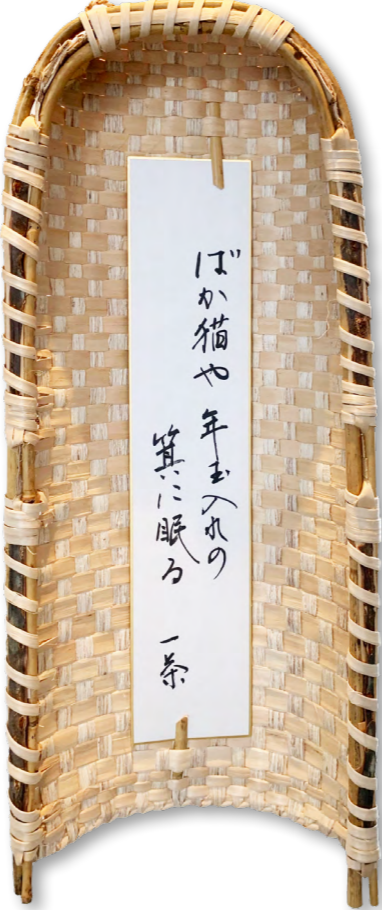 ばか猫や 年玉入れの
箕に眠る 一茶